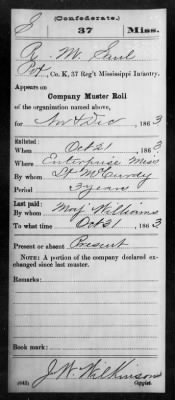 (Confederate.)
S 37 Miss.
R. M. Saul
Pvt, Co. K, 37 Reg't Mississippi Infantry.
Appears on
Company Muster Roll
of the organization named above,
for Nov & Dec, 1863
Enlisted:
When Oct 21, 1863
Where Enterprise Miss
By whom Lt McCurdy
Period 3 years
Last paid:
By whom Maj Williams
To what time Oct 31, 1863
Present or absent Present
NOTE: A portion of the company declared ex-
changed since last muster.
Remarks:
Book mark:
J. W. Wilkinson
(642) Copyist.